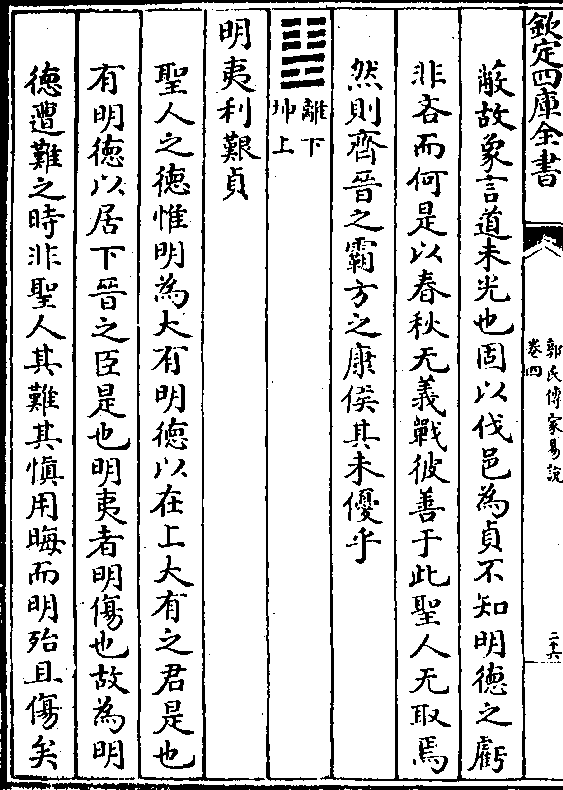 欽定四庫全書
郭氏傳家易說
卷四
二十六
蔽故象言道未光也固以伐邑為貞不知明德之虧
非吝而何是以春秋无義戰彼善于此聖人无取焉
然則齊晉之霸方之康侯其未優乎
離下
坤上
明夷利艱貞
聖人之德惟明為大有明德以在上大有之君是也
有明德以居下晉之臣是也明夷者明傷也故為明
德遭難之時非聖人其難其愼用晦而明殆且傷矣